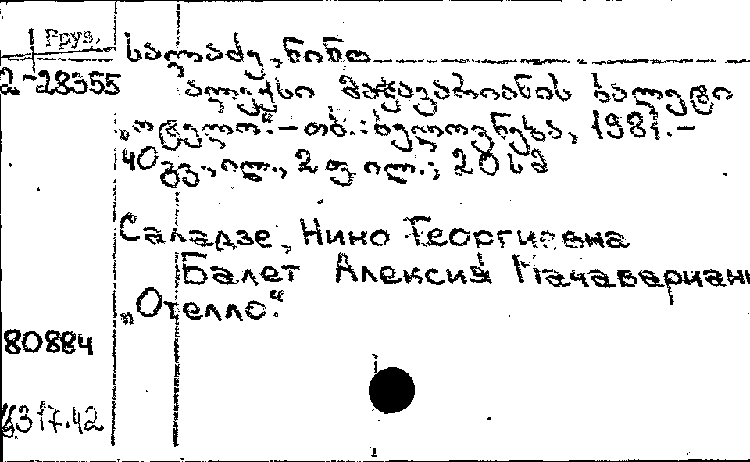 Груз. სალაძე, ნინო
2-28355 ალექსი მაჭავარიანის ბალეტი
„ოტელო“.– თბ.: ხელოვნება, 1981.–
40 გვ., ილ., 2 ფ. ილ.; 20 სმ
Саладзе, Нино Георгиевна
Балет Алексия Мачавариани
„Отелло“.
80884
317.42